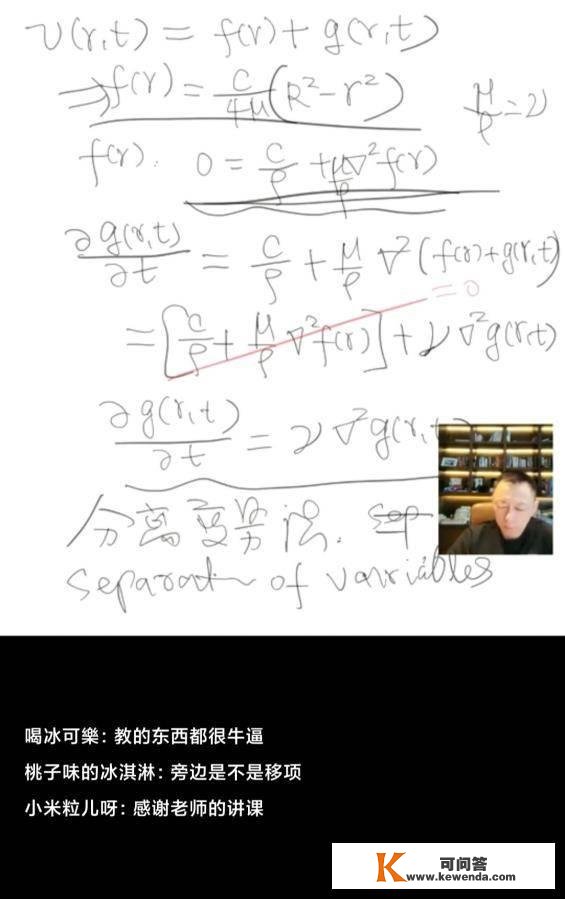 v(r,t) = f(r) + g(r,t)
⇒ f(r) = C/4μ (R²-r²)   μ/ρ = ν
f(r). 0 = C/ρ + μ/ρ ∇² f(r)
∂g(r,t)/∂t = C/ρ + μ/ρ ∇² (f(r)+g(r,t))
= [C/ρ + μ/ρ ∇² f(r)] + ν ∇² g(r,t) = 0
∂g(r,t)/∂t = ν ∇² g(r,t
分离变量法. sep
separation of variables
喝冰可樂: 教的东西都很牛逼
桃子味的冰淇淋: 旁边是不是移项
小米粒儿呀: 感谢老师的讲课
K 可问答
www.kewenda.com